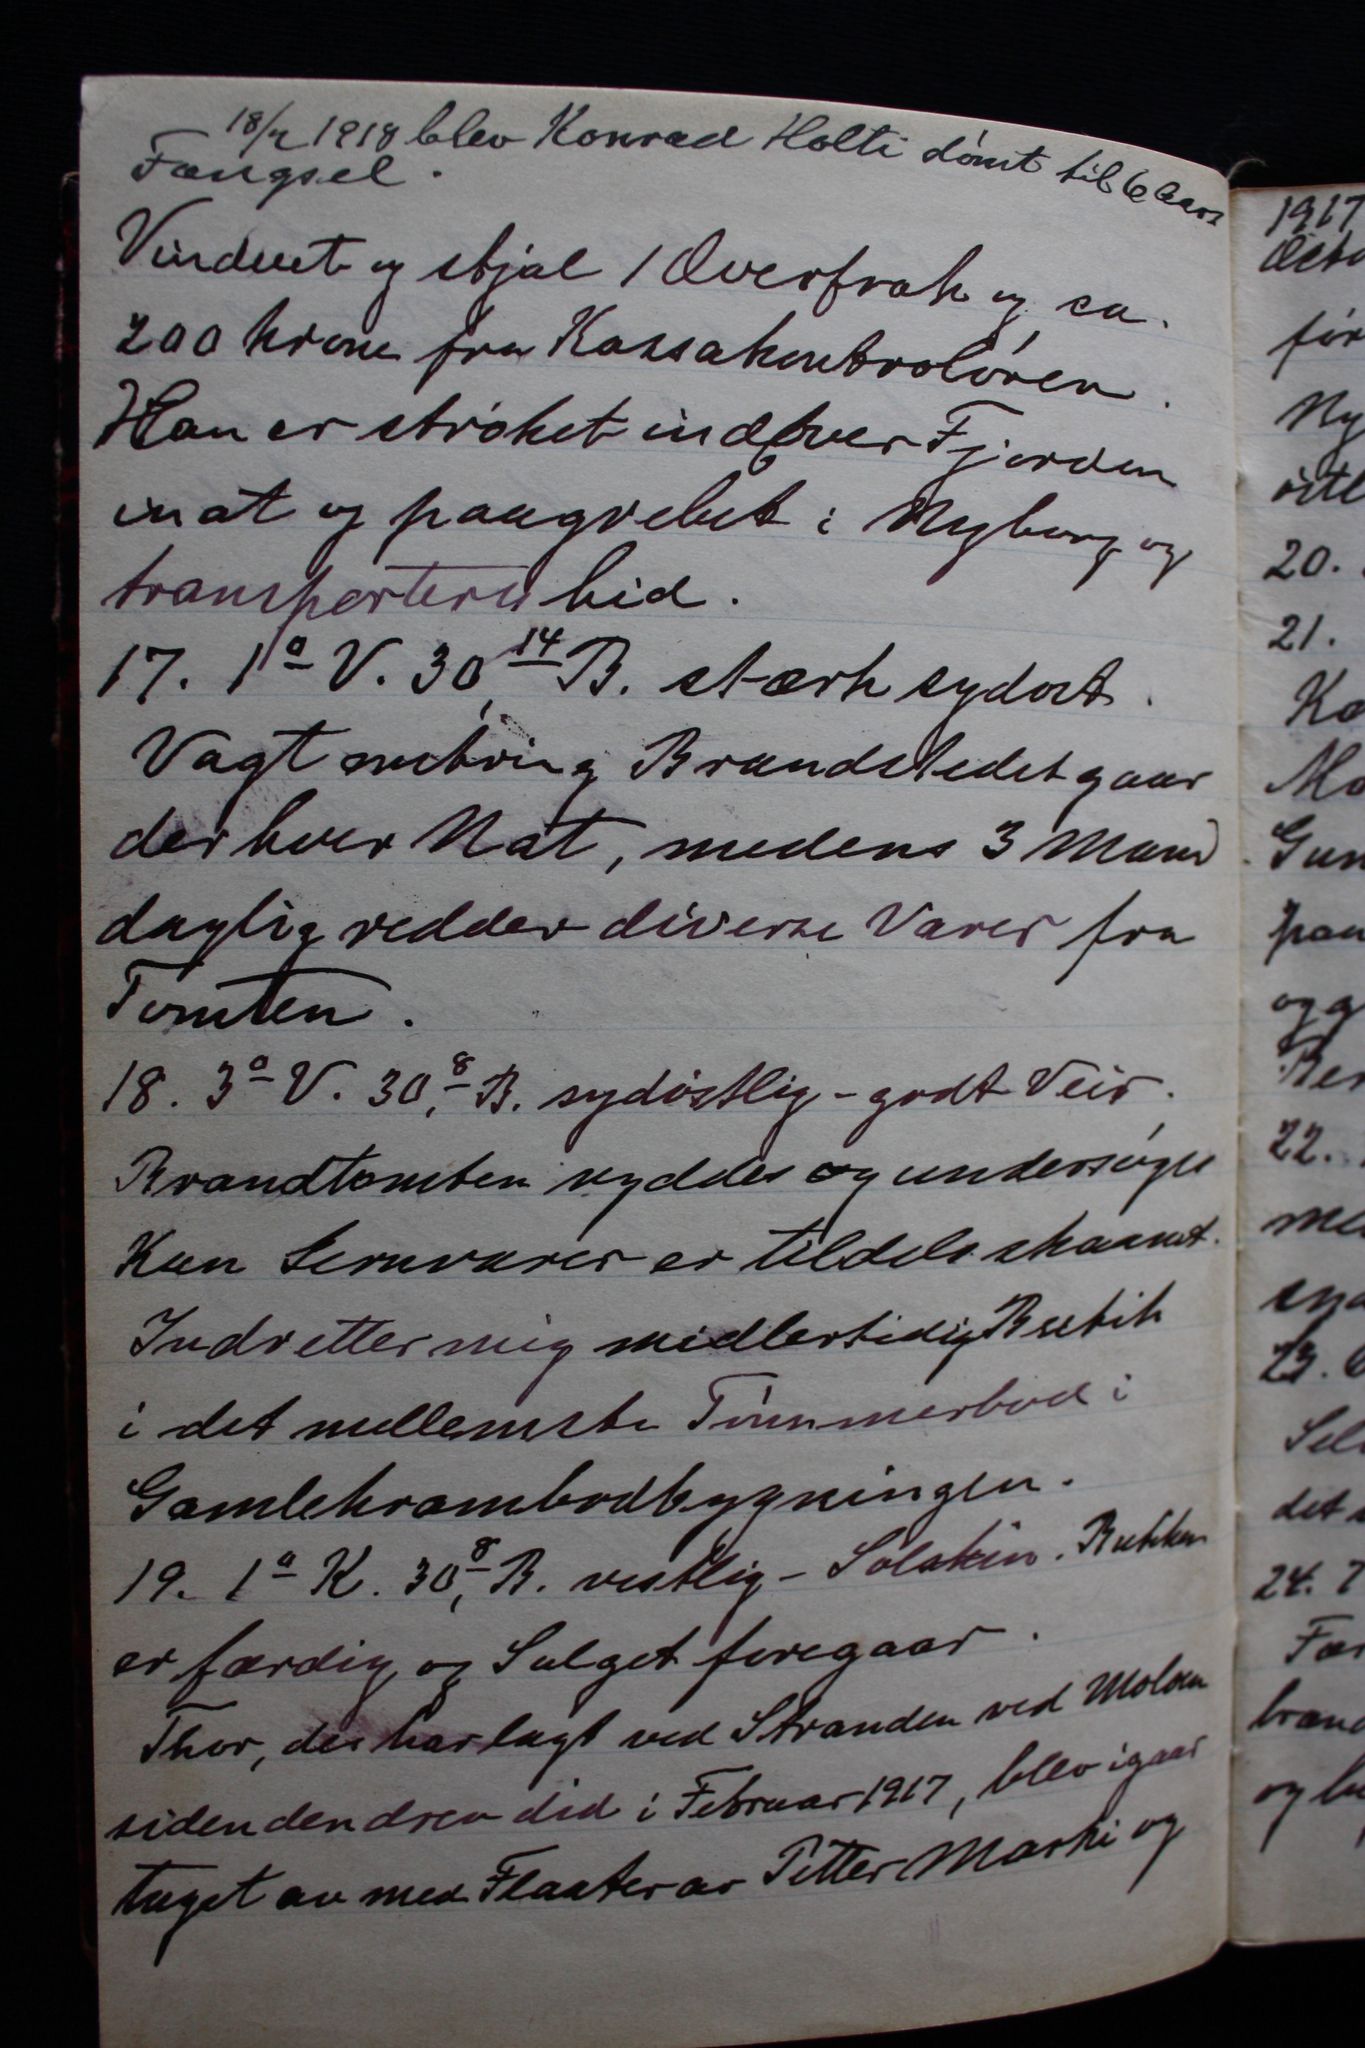 18/4 1918 blev Konrad Holti dømt til 6 Aars
Fængsel.
Vinduet og stjal 1 Overfrak og ca.
200 krone fra Kassakontroløren.
Han er strøket indover Fjorden
inat og paagrebet i Nyborg og
transporteres hid.
17. 1° V. 30,14 B. stærk sydost.
Vagt omkring Brandstedet gaar
der hver Nat, medens 3 Mand
daglig redder diverse Varer fra
Tomten.
18. 3° V. 30,8 B. sydøstlig - godt Veir.
Brandtomten ryddes og undersøges
Kun Jernvarer er tildels skaanet.
Indretter mig midlertidig Butik
i det mellemste Tømmerbod i
Gamlekrambodbygningen.
19. 1° K. 30,8 B. vestlig - Solskin. Butikken
er færdig og Salget foregaar.
Thor, der har lagt ved Stranden ved Moloen
siden den drev did i Februar 1917, blev igaar
taget av med Flaater av Petter Marki og
1917
før
Ny
20.
21.
Ka
Mo
Gun
paa
og g
22.
me
23.
det
24.
bran